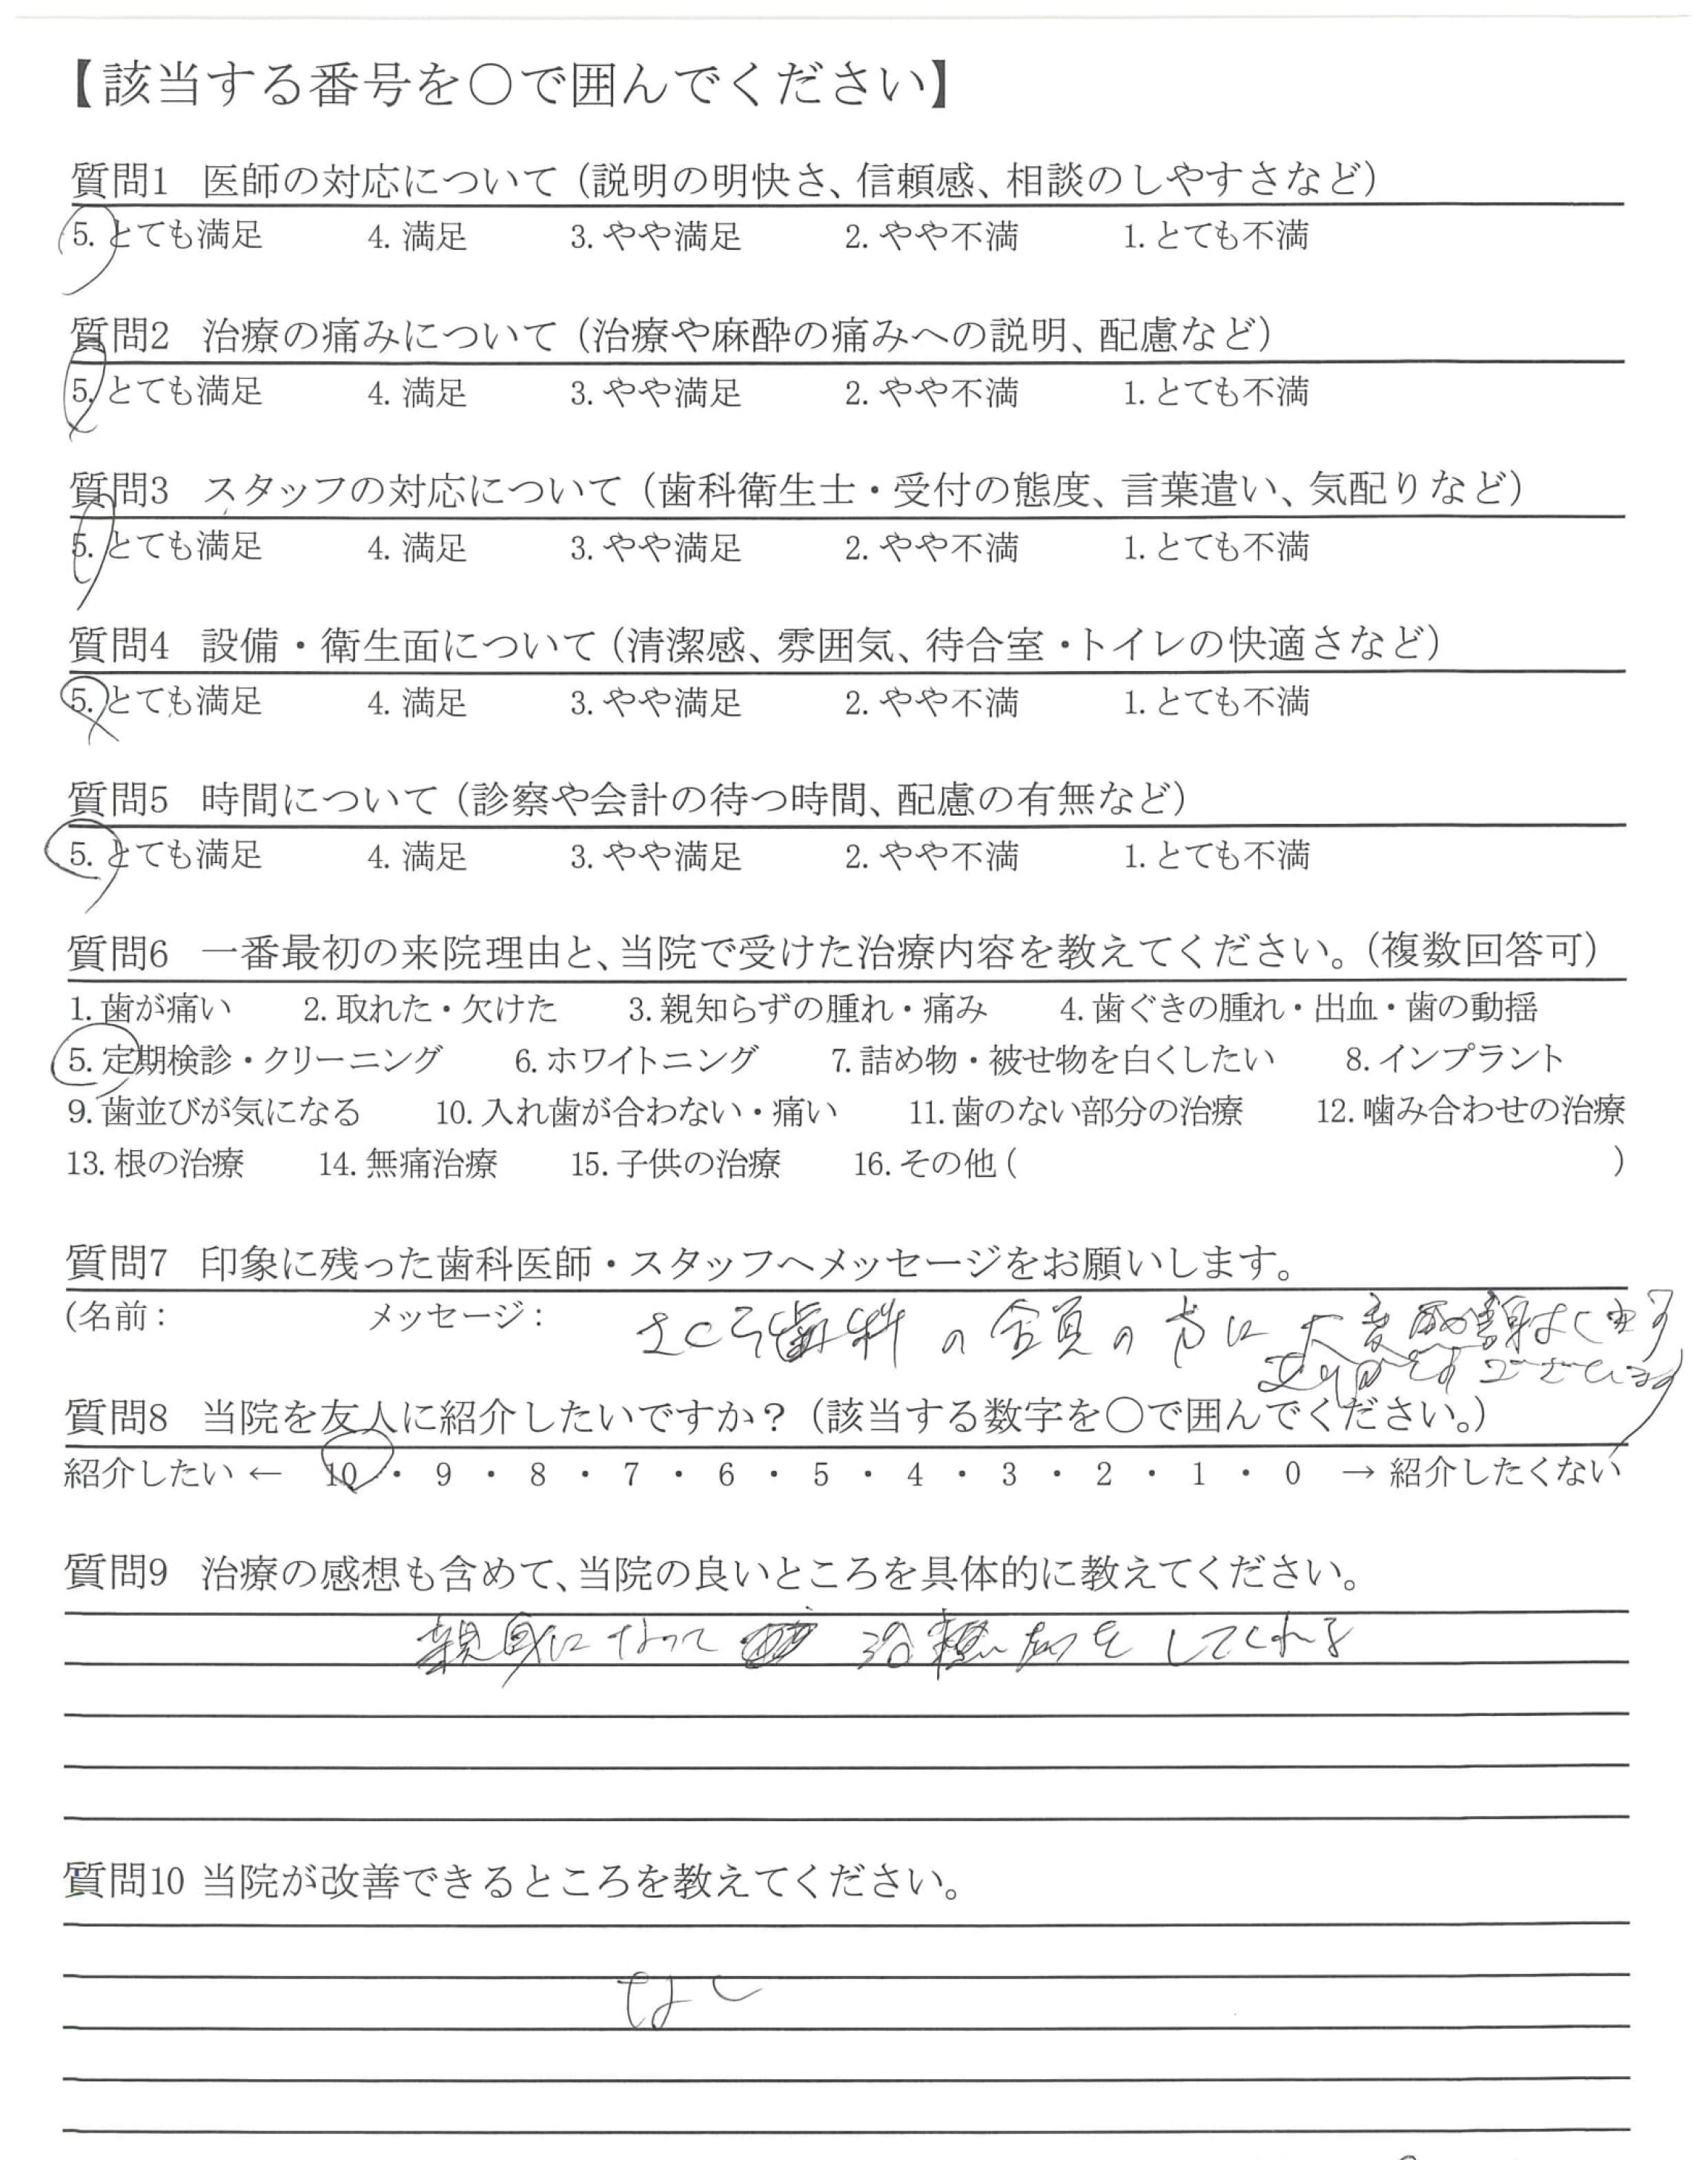 【該当する番号を○で囲んでください】
質問1 医師の対応について（説明の明快さ、信頼感、相談のしやすさなど）
5. とても満足 4. 満足 3. やや満足 2. やや不満 1. とても不満
質問2 治療の痛みについて（治療や麻酔の痛みへの説明、配慮など）
5. とても満足 4. 満足 3. やや満足 2. やや不満 1. とても不満
質問3 スタッフの対応について（歯科衛生士・受付の態度、言葉遣い、気配りなど）
5. とても満足 4. 満足 3. やや満足 2. やや不満 1. とても不満
質問4 設備・衛生面について（清潔感、雰囲気、待合室・トイレの快適さなど）
5. とても満足 4. 満足 3. やや満足 2. やや不満 1. とても不満
質問5 時間について（診察や会計の待つ時間、配慮の有無など）
5. とても満足 4. 満足 3. やや満足 2. やや不満 1. とても不満
質問6 一番最初の来院理由と、当院で受けた治療内容を教えてください。（複数回答可）
1. 歯が痛い 2. 取れた・欠けた 3. 親知らずの腫れ・痛み 4. 歯ぐきの腫れ・出血・歯の動揺
5. 定期検診・クリーニング 6. ホワイトニング 7. 詰め物・被せ物を白くしたい 8. インプラント
9. 歯並びが気になる 10. 入れ歯が合わない・痛い 11. 歯のない部分の治療 12. 噛み合わせの治療
13. 根の治療 14. 無痛治療 15. 子供の治療 16. その他 ( )
質問7 印象に残った歯科医師・スタッフへメッセージをお願いします。
(名前： メッセージ： 歯科の全員の方に大変
ございます
質問8 当院を友人に紹介したいですか？（該当する数字を○で囲んでください。）
紹介したい ← 10 ・ 9 ・ 8 ・ 7 ・ 6 ・ 5 ・ 4 ・ 3 ・ 2 ・ 1 ・ 0 → 紹介したくない
質問9 治療の感想も含めて、当院の良いところを具体的に教えてください。
親身になって 治療 をしてくれる
質問10 当院が改善できるところを教えてください。
なし